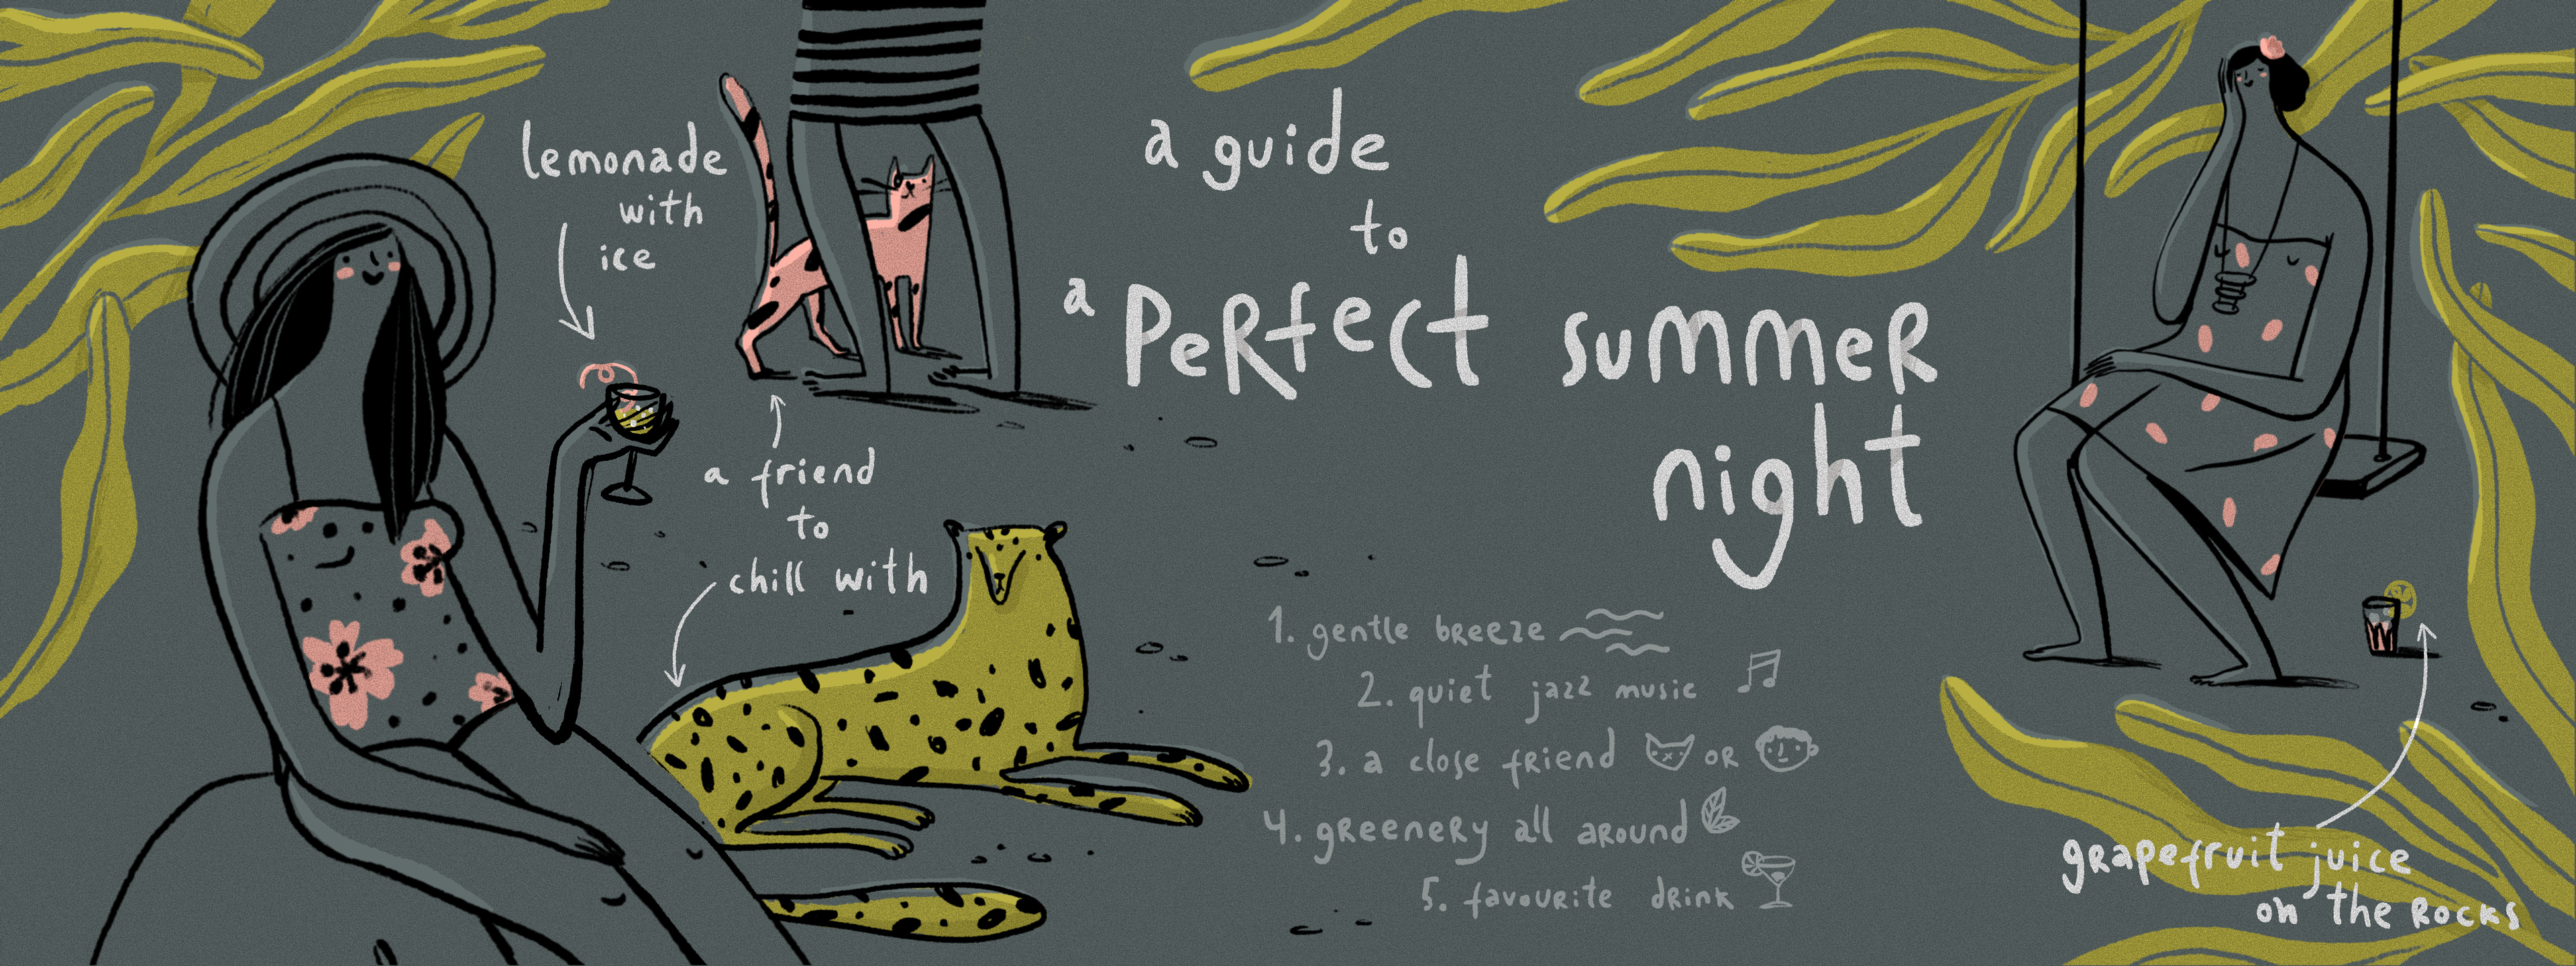 lemonade
with
ice
a friend
to
chill with
a guide
to
a perfect summer
night
1. gentle breeze
2. quiet jazz music
3. a close friend or
4. greenery all around
5. favourite drink
grapefruit juice
on the rocks